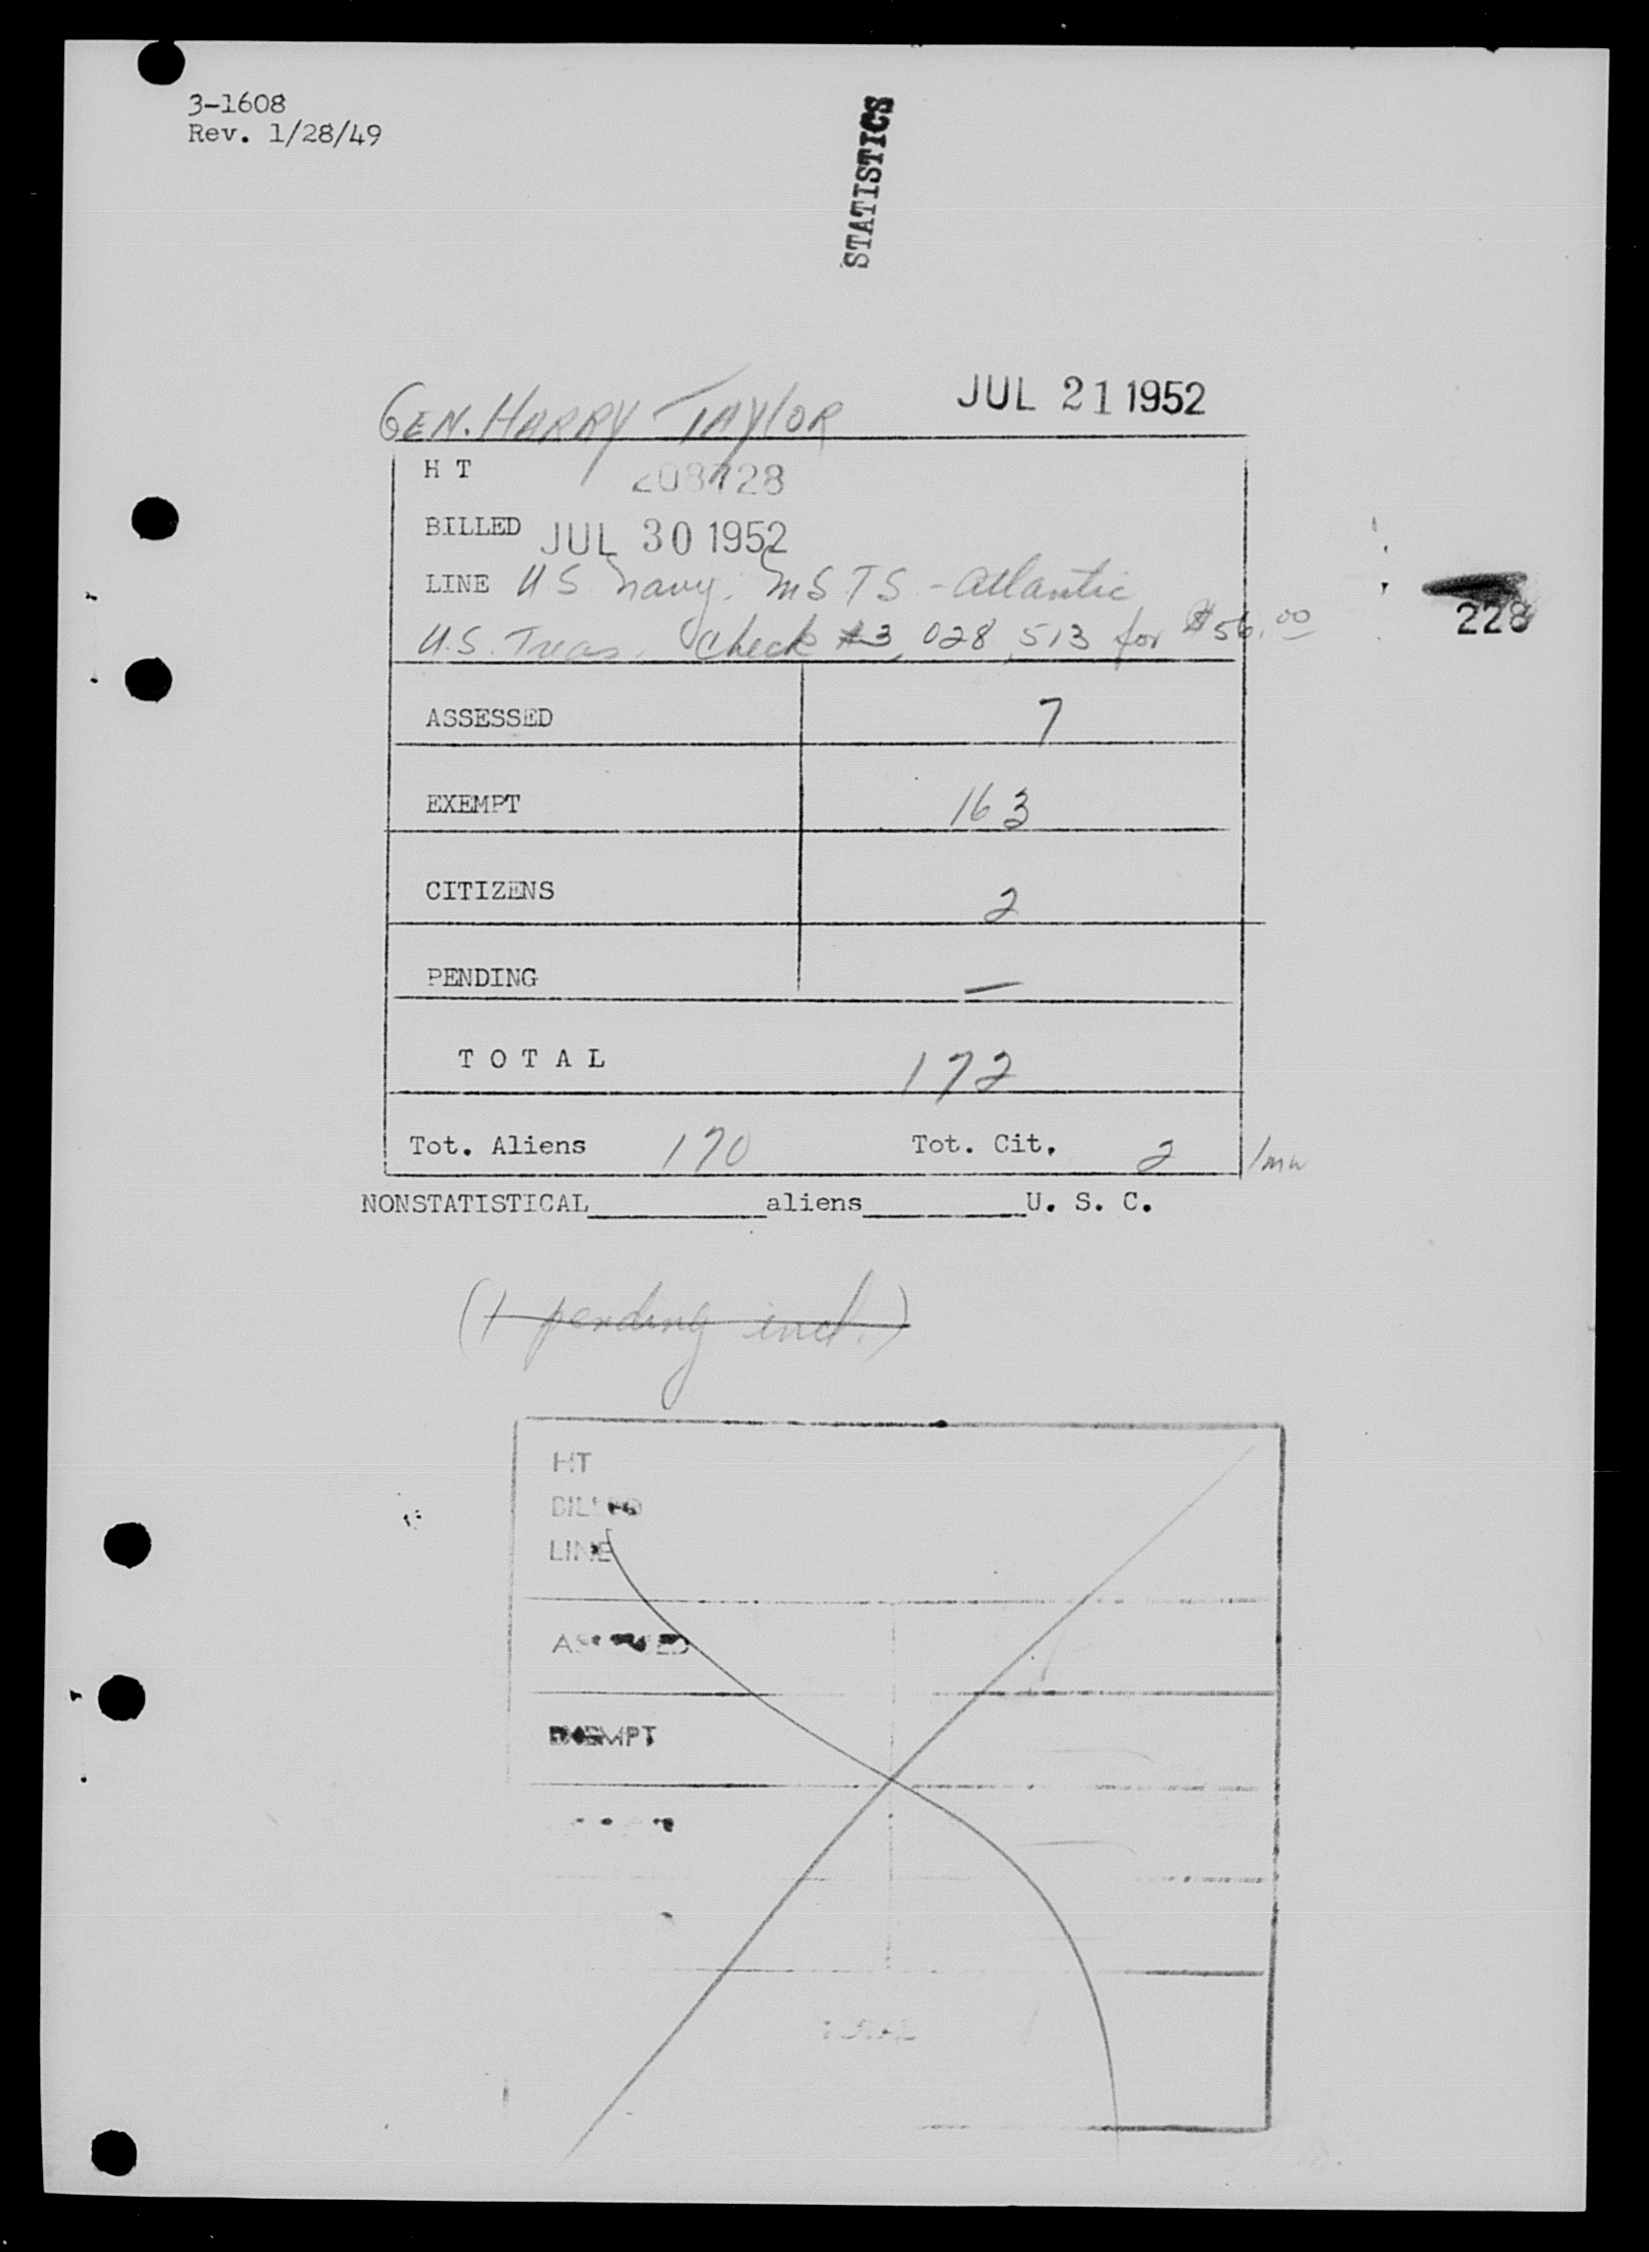 3-1608
Rev. 1/28/49
STATISTICS
GEN. HARRY TAYLOR JUL 21 1952
H T 208728
BILLED JUL 30 1952
LINE US Navy. MSTS - Atlantic
U.S. Treas. Check #3,028,513 for $56.00
228
ASSESSED 7
EXEMPT 163
CITIZENS 2
PENDING —
T O T A L 172
Tot. Aliens 170 Tot. Cit. 2
NONSTATISTICAL__________aliens_________U. S. C.
(1 pending incl.)
HT
BILLED
LINE
ASSESSED
EXEMPT
TOTAL